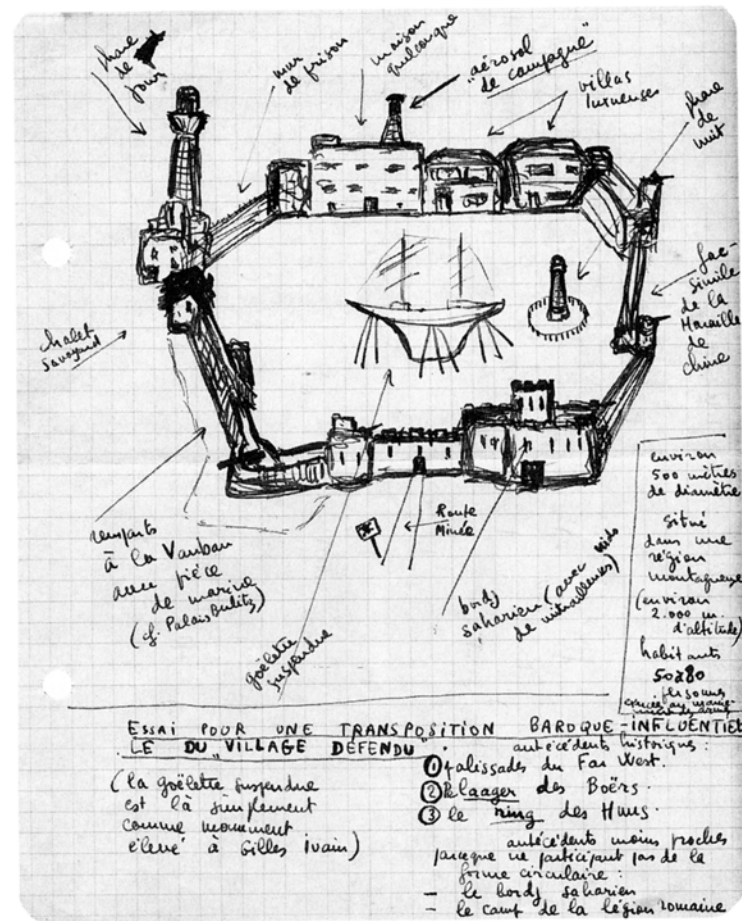 phare
de
jour
mur
de prison
maison
quelconque
"aérosol
de campagne"
villas
luxueuses
phare
de
nuit
fac-
simile
de la
Muraille
de
Chine
chalet
savoyard
remparts
à la Vauban
avec pièce
de marine
(cf. Palais
goëlette
suspendue
Route
Minée
bordj
saharien (avec nids
de mitrailleuses)
environ
500 mètres
de diamètre
situé
dans une
région
montagneuse
(environ
2.000 m.
d'altitude)
habitants
50 à 80
personnes
ESSAI POUR UNE TRANSPOSITION BAROQUE-INFLUENTIEL
LE DU "VILLAGE DÉFENDU".
(la goëlette suspendue
est là simplement
comme monument
élevé à Gilles Ivain)
antécédents historiques :
① palissades du Far West.
② le laager des Boërs.
③ le ring des Huns.
antécédents moins proches
parceque ne participant pas de la
forme circulaire :
- le bordj saharien
- le camp de la légion romaine